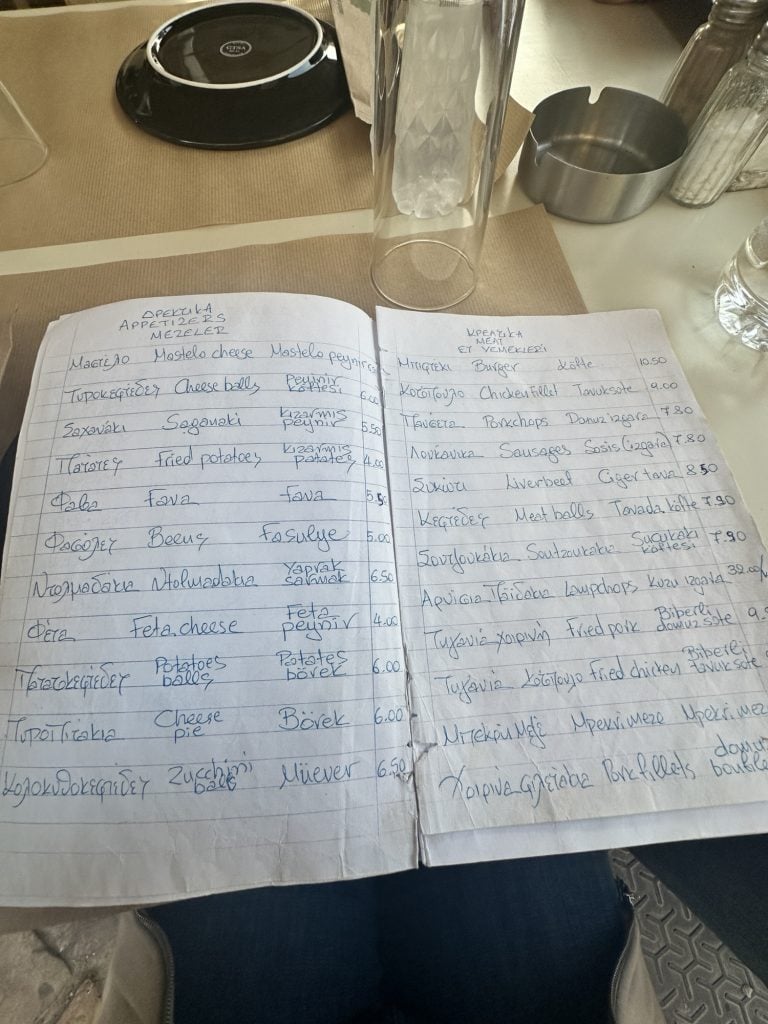 ΟΡΕΚΤΙΚΑ
APPETIZERS
MEZELER
Μαστελο Mastelo cheese Mastelo peyniri
Τυροκεφτεδες Cheese balls Peynir köftesi 6.00
Σαχανάκι Saganaki kızarmış peynir 5.50
Πατάτες Fried potatoes kızarmış patates 4.00
Φαβα Fava fava 5.50
Φασόλες Beens Fasulye 5.00
Ντολμαδάκια Ntolmadakia Yaprak sarmak 6.50
Φέτα Feta cheese Feta peynir 4.00
Πατατοκεφτέδες Potatoes balls Patates börek 6.00
Τυροπιτάκια Cheese pie Börek 6.00
Κολοκυθοκεφτέδες Zucchini ball Müever 6.50
ΚΡΕΑΤΙΚΑ
MEAT
ET YEMEKLERİ
Μπιφτέκι Burger köfte 10.50
Κοτόπουλο Chicken fillet Tavuk sote 9.00
Πανσετα Porkchops Domuz izgara 7.80
Λουκανικα Sausages Sosis (izgara) 7.80
Συκώτι Liverbeef Ciger tava 8.50
Κεφτέδες Meat balls Tavada köfte 7.90
Σουτζουκάκια Soutzoukakia Sucukaki köftesi 7.90
Αρνίσια Παϊδάκια Lampchops Kuzu izgara
Τηγανιά χοιρινή Fried pork Biberli domuz sote
Τηγανιά κοτόπουλο Fried chicken Biberli tavuk sote
Μπεκρή Μεζέ Mpekri meze Mpekri meze
Χοιρινά φιλετάκια Pork fillets